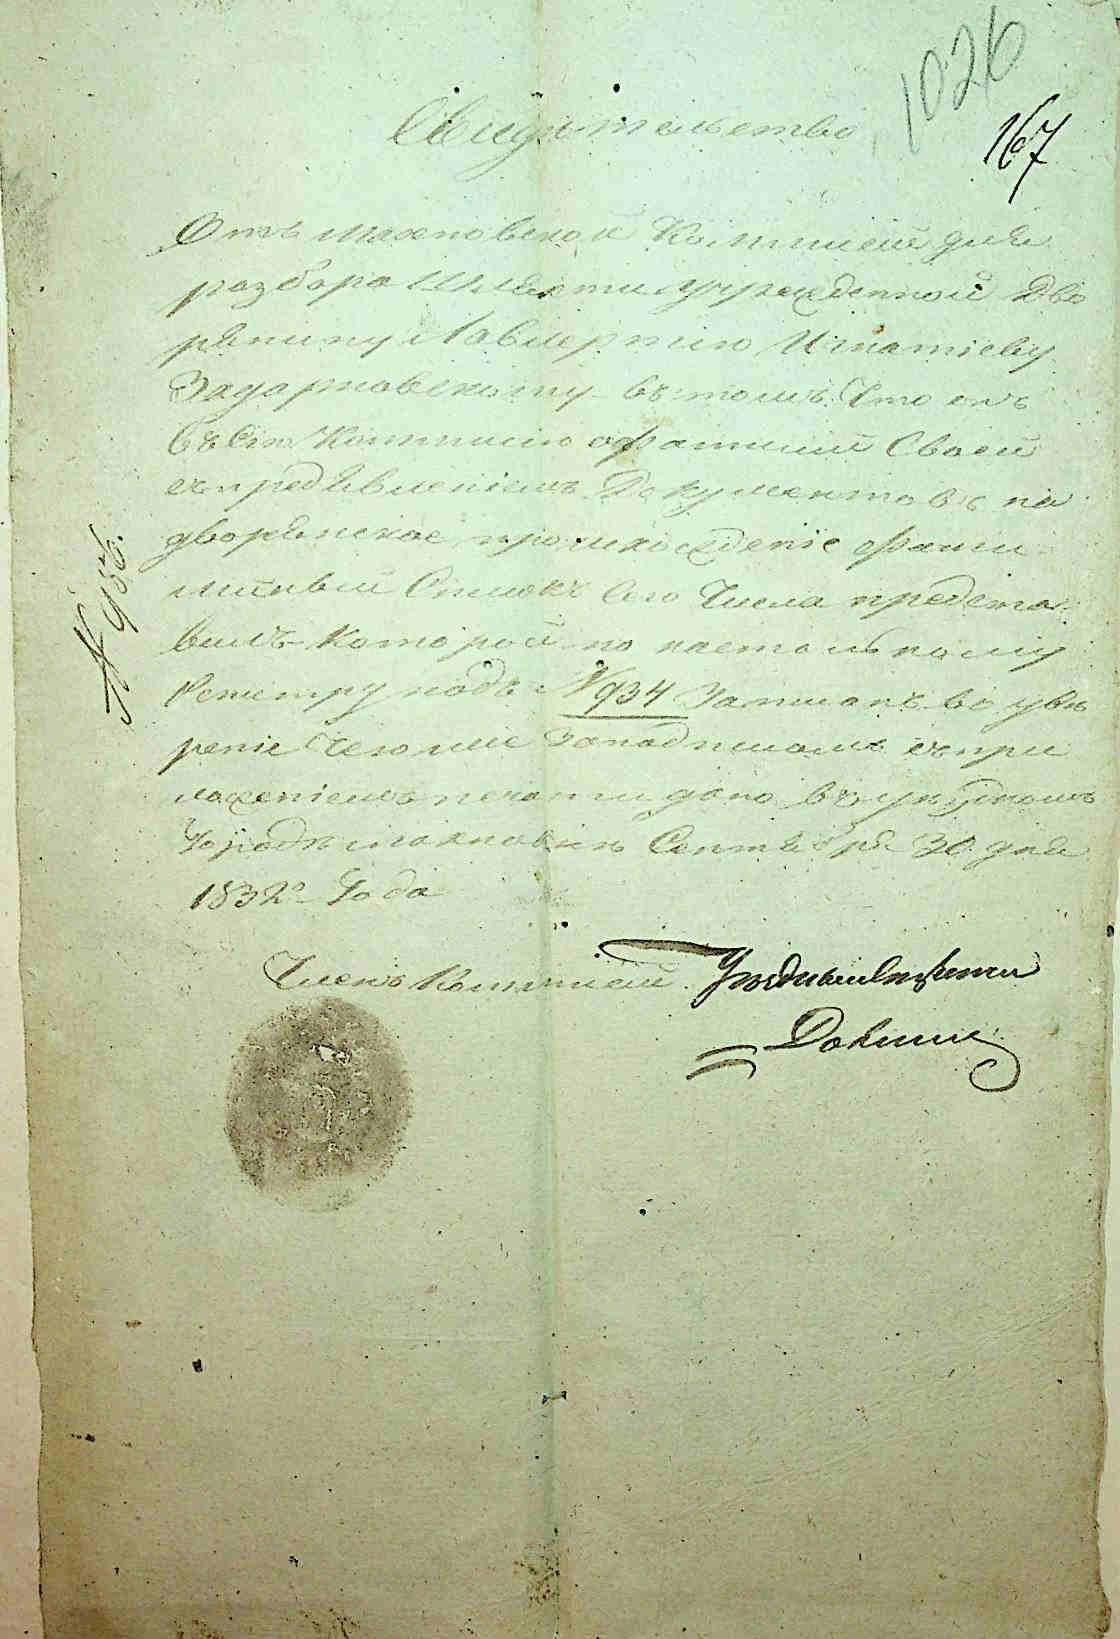 1026
167
Свидѣтельство
Отъ Махновской Коммисіи для
разбора Шляхти учрежденной Дво
рянину Лаврентію Игнатіеву
Задарновскому въ томъ что онъ
въ Сію Коммисію о фамиліи Своей
съ предъявленіемъ Документовъ на
дворянское происхожденіе фами
лійный Списокъ сего Числа предста
вилъ который по настольному
Регистру подъ № 934 Записанъ во увѣ
реніе чего мне за подписомъ съ при
ложеніемъ печати дано въ уѣздномъ
Городѣ Махновкѣ Сентября 30 дня
1832го Года
Членъ Коммисіи
№ 938.